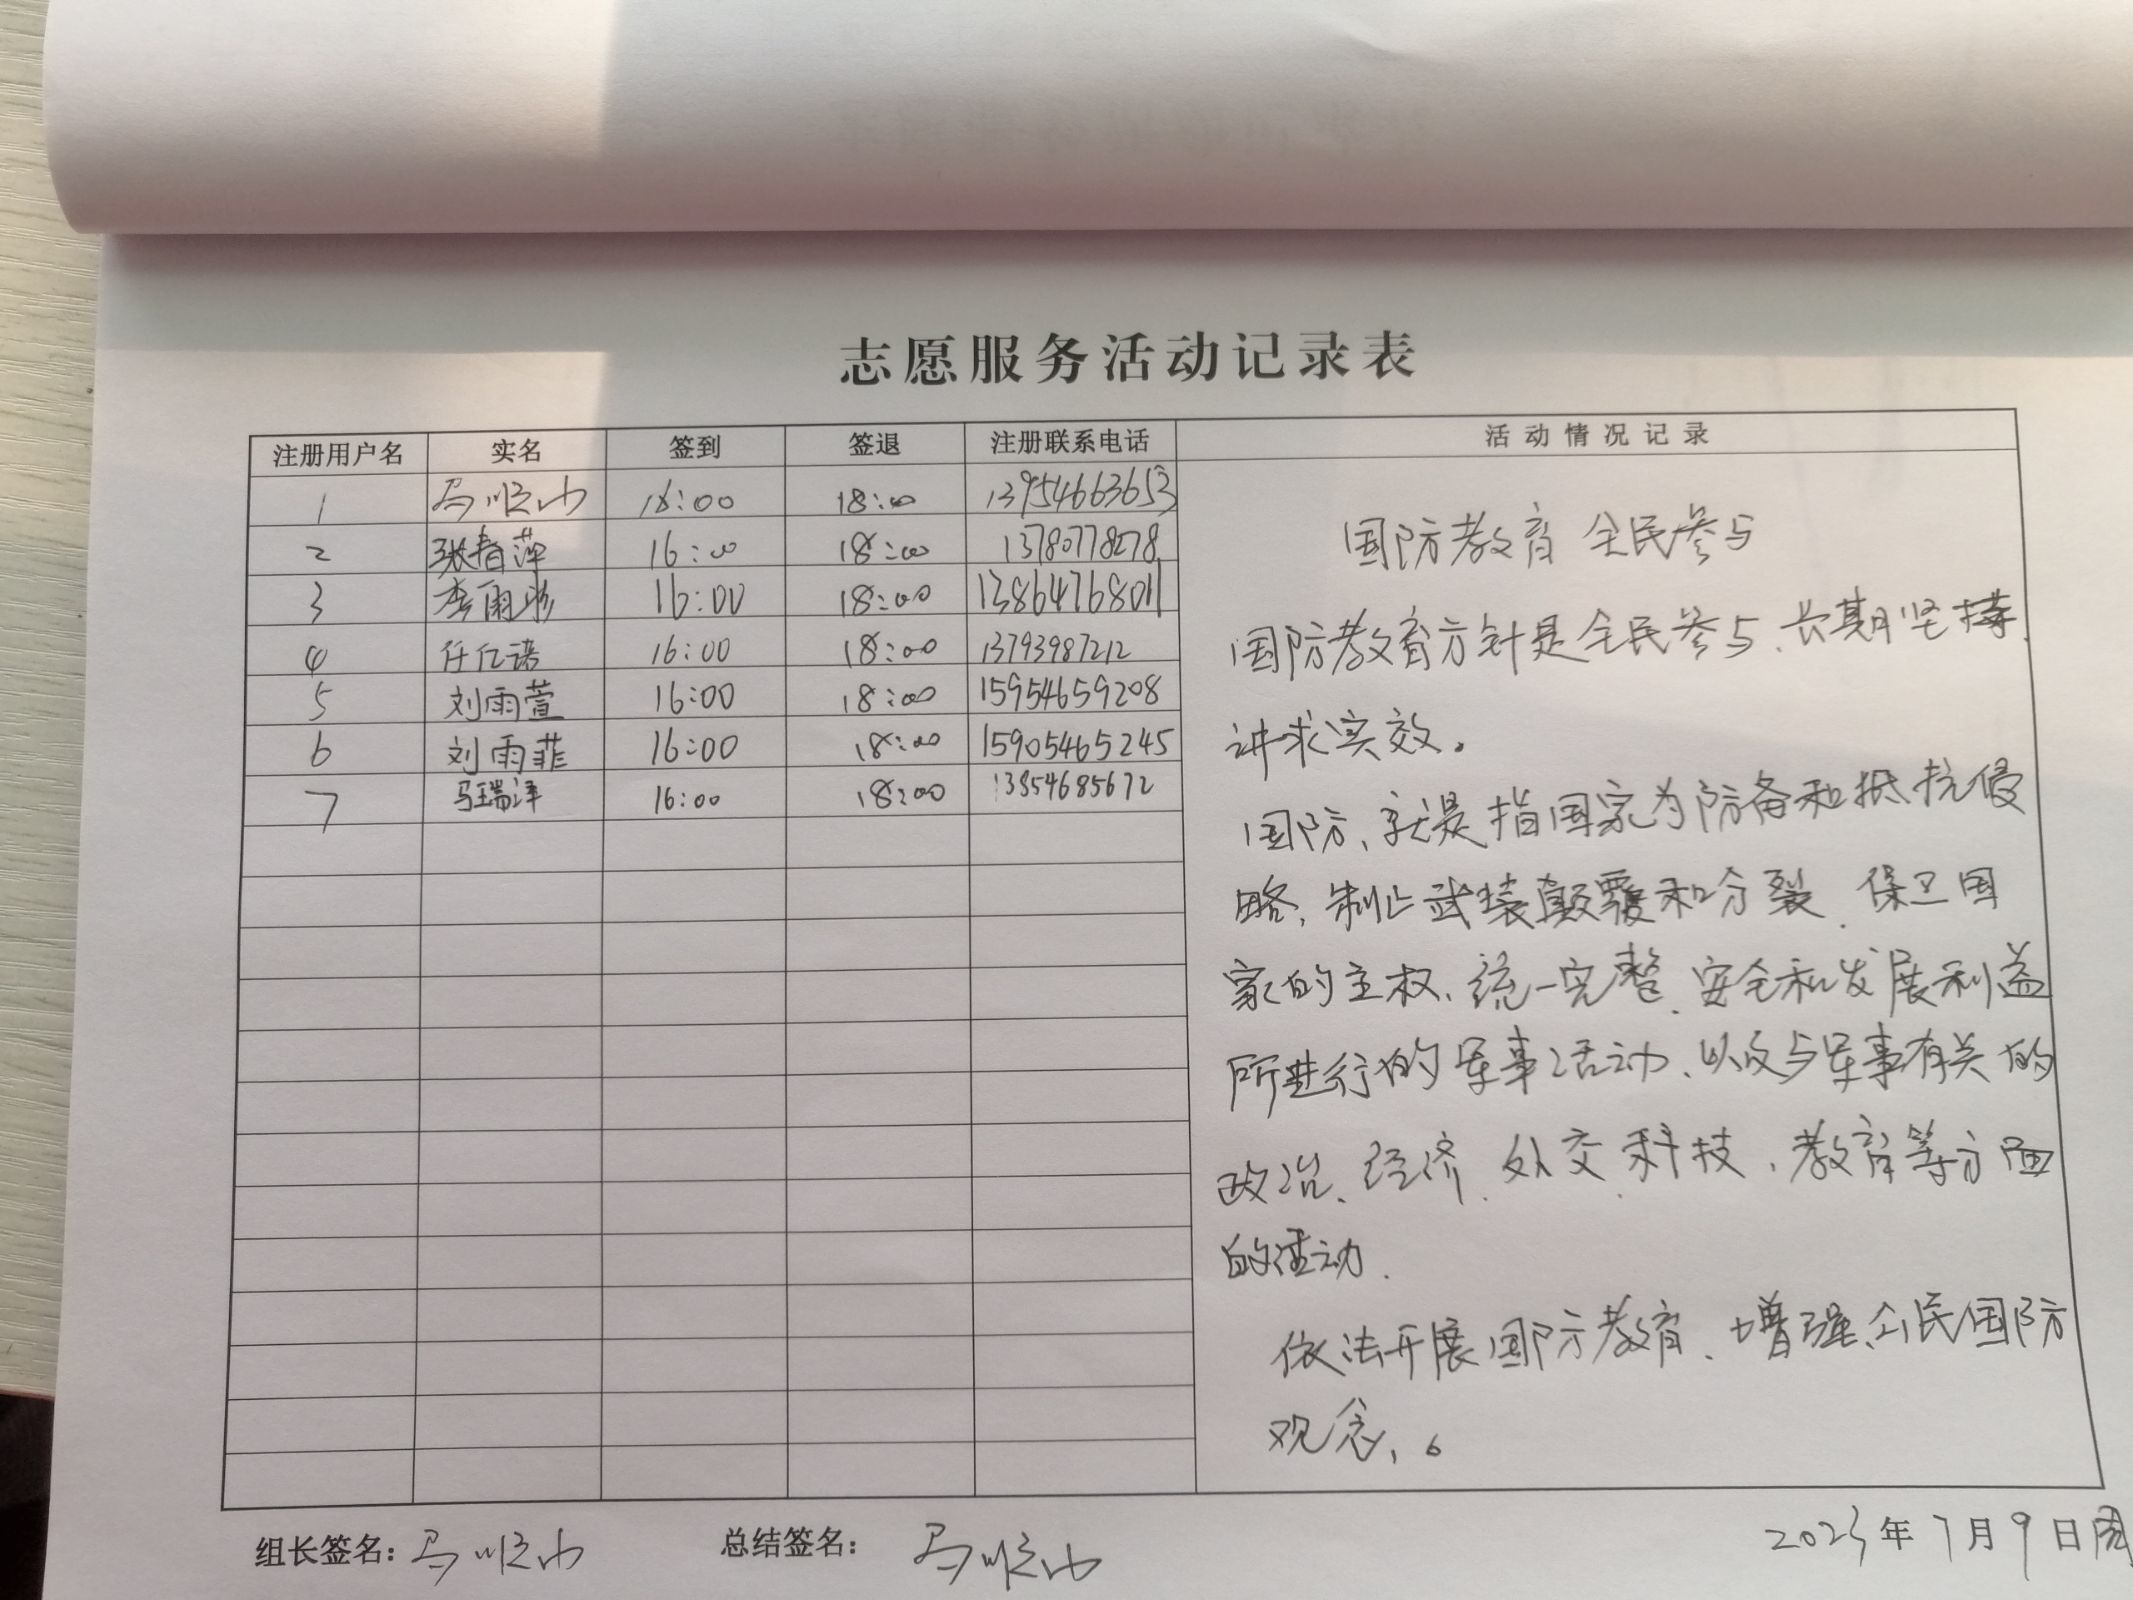 志愿服务活动记录表
注册用户名 实名 签到 签退 注册联系电话 活动情况记录
1 马顺山 16:00 18:00 13954663653
2 张春萍 16:00 18:00 13780778278
3 李雨珍 16:00 18:00 13864768011
4 任亿语 16:00 18:00 13793987212
5 刘雨萱 16:00 18:00 15954659208
6 刘雨菲 16:00 18:00 15905465245
7 马瑞泽 16:00 18:00 13854685672
国防教育 全民参与
国防教育方针是全民参与、长期坚持、
讲求实效。
国防、就是指国家为防备和抵抗侵
略,制止武装颠覆和分裂、保卫国
家的主权、统一完整、安全和发展利益
所进行的军事活动、以及与军事有关的
政治、经济、外交、科技、教育等方面
的活动.
依法开展国防教育、增强公民国防
观念,。
组长签名:马顺山 总结签名: 马顺山 2023年7月9日周